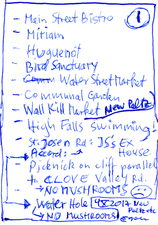 1
- Main Street Bistro
- Miriam
- Huguenot
- Bird Sanctuary
- Water Street Market
- Communal Garden
- Wall Kill Market New Paltz
- High Falls swimming
- St. Josen Rd: JSS Ex House
- Accord →
Picknick on cliff parallel
to CLOVE Valley Rd.
→ NO MUSHROOMS
→ Water Hole 4/5 2017 New Paltz etc
→ NO MUSHROOMS